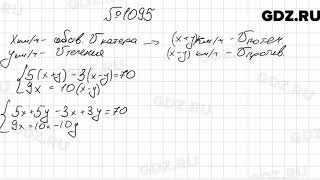 GDZ.RU
№1095
x км/ч - собств. V катера → (x+y) км/ч - V по теч.
y км/ч - V течения (x-y) км/ч - V против.
5(x+y) - 3(x-y) = 70
9x = 10(x-y)
5x + 5y - 3x + 3y = 70
9x = 10x - 10y